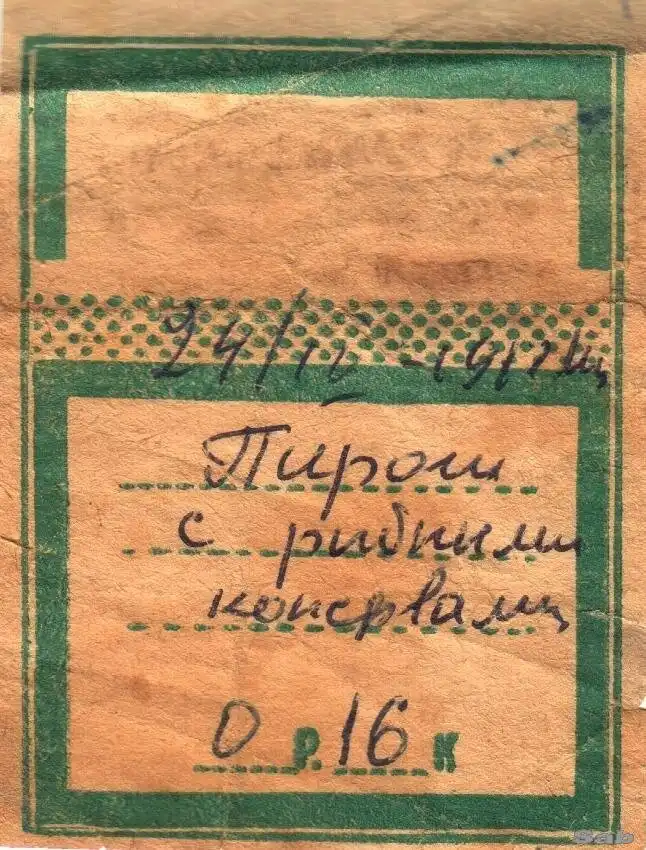 24/IV
Пирош
с рибними
консервами
0 Р. 16 К
Sab